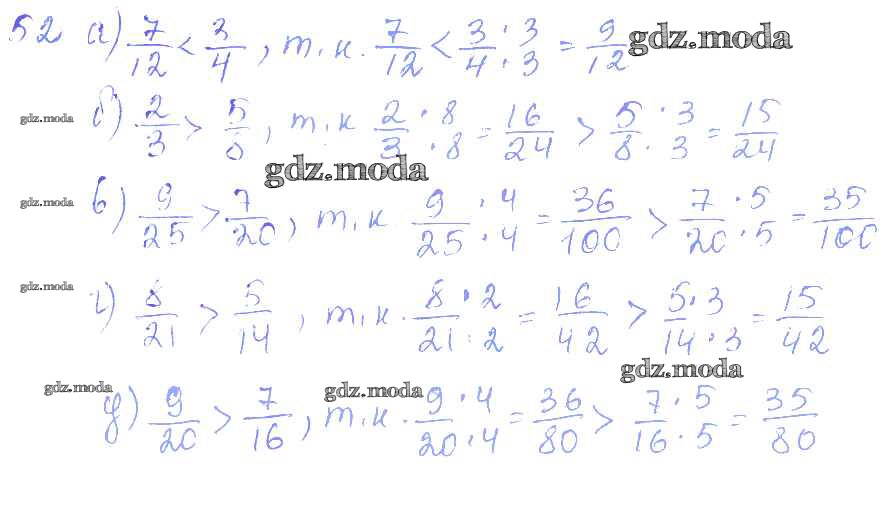 52 а) 7/12 < 3/4, т.к. 7/12 < 3·3/4·3 = 9/12 gdz.moda
gdz.moda б) 2/3 > 5/8, т.к 2·8/3·8 = 16/24 > 5·3/8·3 = 15/24
gdz.moda
gdz.moda в) 9/25 > 7/20, т.к 9·4/25·4 = 36/100 > 7·5/20·5 = 35/100
gdz.moda г) 8/21 > 5/14, т.к. 8·2/21·2 = 16/42 > 5·3/14·3 = 15/42
gdz.moda
gdz.moda д) 9/20 > 7/16, т.к. 9·4/20·4 = 36/80 > 7·5/16·5 = 35/80
gdz.moda